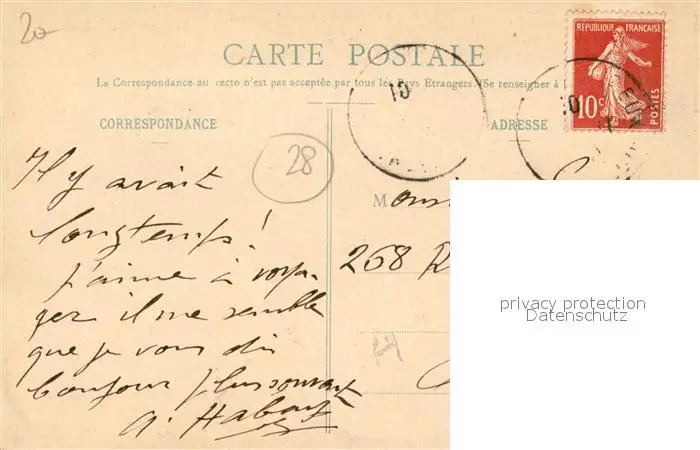 20
CARTE POSTALE
La Correspondance au recto n'est pas acceptée par tous les Pays Étrangers. (Se renseigner à l
REPUBLIQUE FRANÇAISE
10c
POSTES
10
CORRESPONDANCE
ADRESSE
28
Il y avait
longtemps !
j'aime à voya-
ger il me semble
que je vous dis
bonjour plus souvent
Mons
268 R
privacy protection
Datenschutz